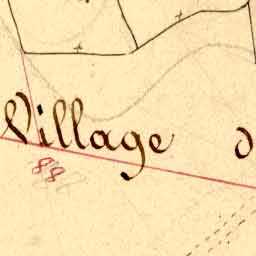 Village d
88